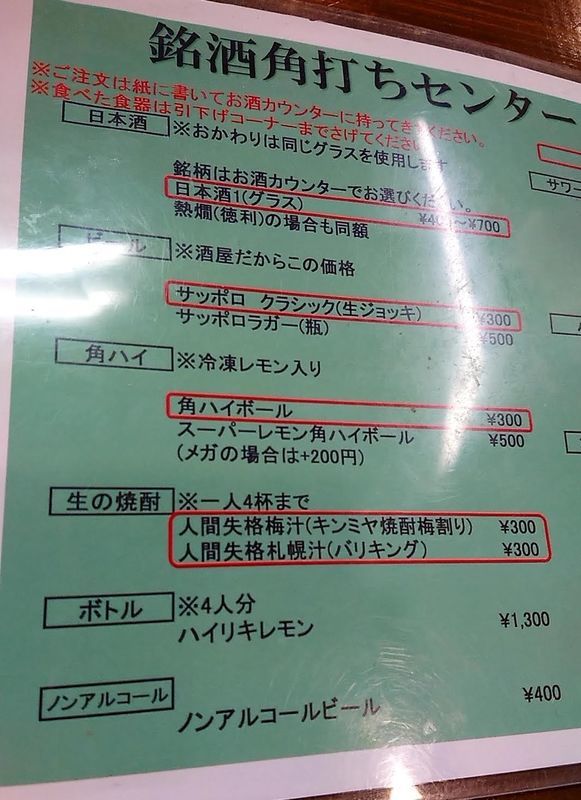 銘酒角打ちセンター
※ご注文は紙に書いてお酒カウンターに持ってきてください。
※食べた食器は引下げコーナーまでさげてください
日本酒 ※おかわりは同じグラスを使用します
銘柄はお酒カウンターでお選びください。
日本酒1(グラス) ～¥700
熱燗(徳利)の場合も同額
ビール ※酒屋だからこの価格
サッポロ クラシック(生ジョッキ) ¥300
サッポロラガー(瓶) ¥500
角ハイ ※冷凍レモン入り
角ハイボール ¥300
スーパーレモン角ハイボール ¥500
(メガの場合は+200円)
生の焼酎 ※一人4杯まで
人間失格梅汁(キンミヤ焼酎梅割り) ¥300
人間失格札幌汁(バリキング) ¥300
ボトル ※4人分
ハイリキレモン ¥1,300
ノンアルコール
ノンアルコールビール ¥400
サワー